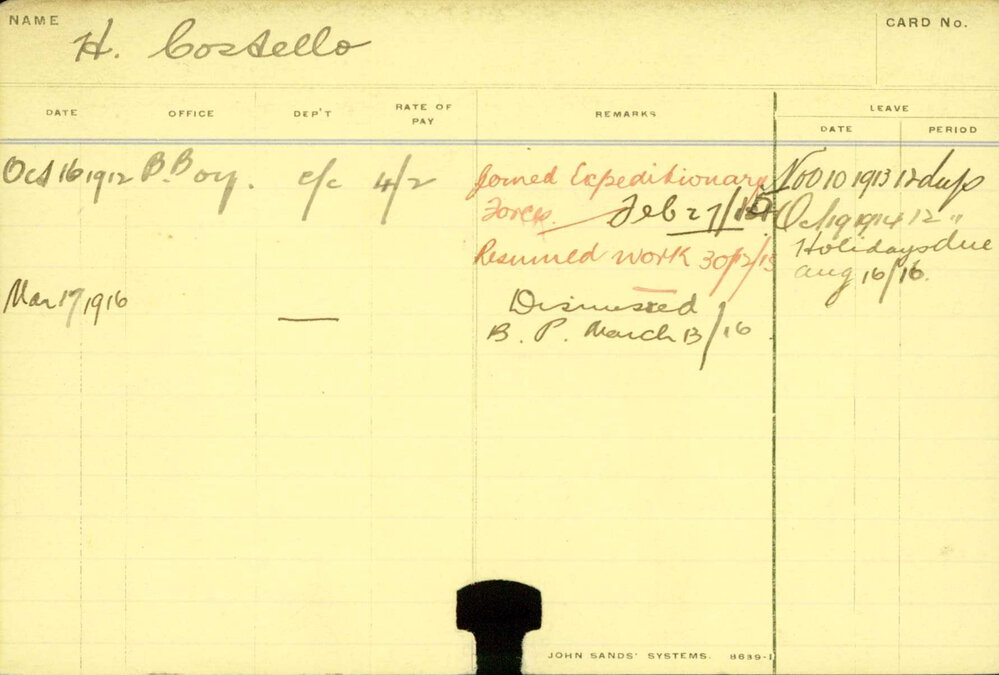 NAME H. Costello CARD No.
DATE OFFICE DEP'T RATE OF PAY REMARKS LEAVE
DATE PERIOD
Oct 16 1912 B. Boy. c/c 4/2 Joined Expeditionary Nov 10 1913 12 days
Forces. Feb 27/15 Oct 19 1914 12 "
Holidays due
Resumed work 30/12/15 Aug 16/16.
Mar 17 1916 — Dismissed
B. P. March 13/16
JOHN SANDS' SYSTEMS. 8639-1